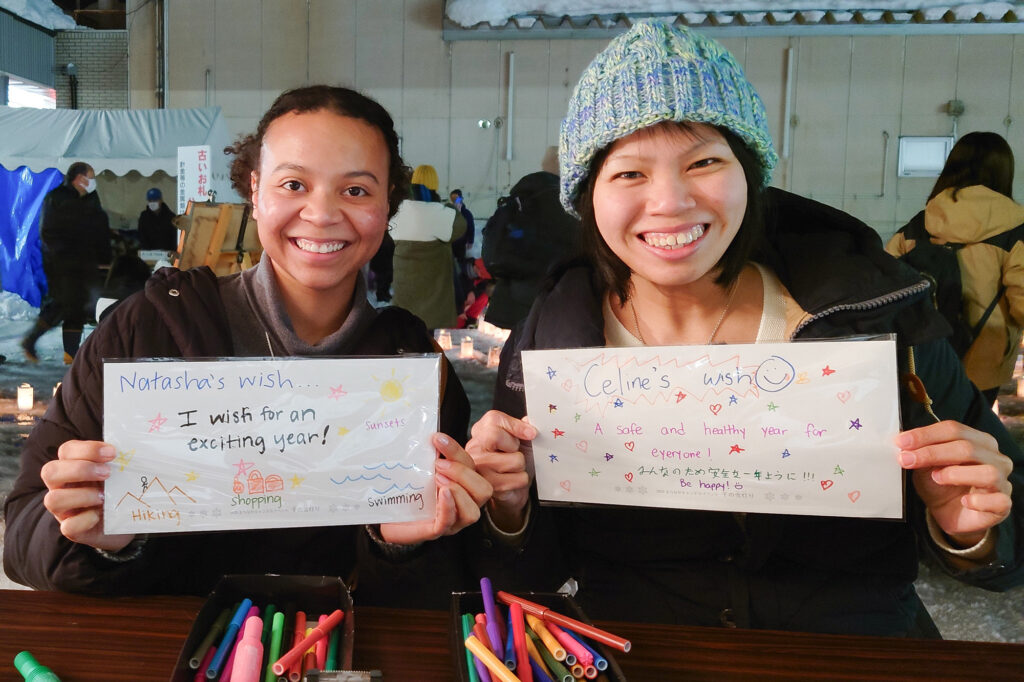 古いお札
Natasha's wish...
I wish for an
exciting year!
sunsets
Hiking
shopping
swimming
Celine's wish
A safe and healthy year for
everyone!
みんなのため
!!!
Be happy!